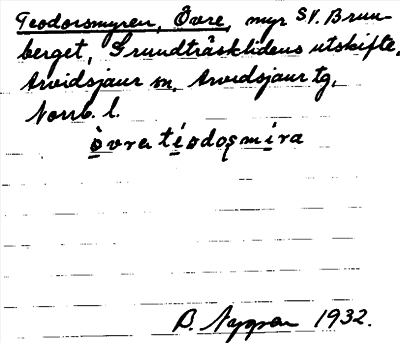 Teodorsmyren, Övre, myr SV. Brun-
berget, Grundträsklidens utskifte,
Arvidsjaur sn, Arvidsjaur tg,
Norrb. l.
òvra téodosmira
1932.